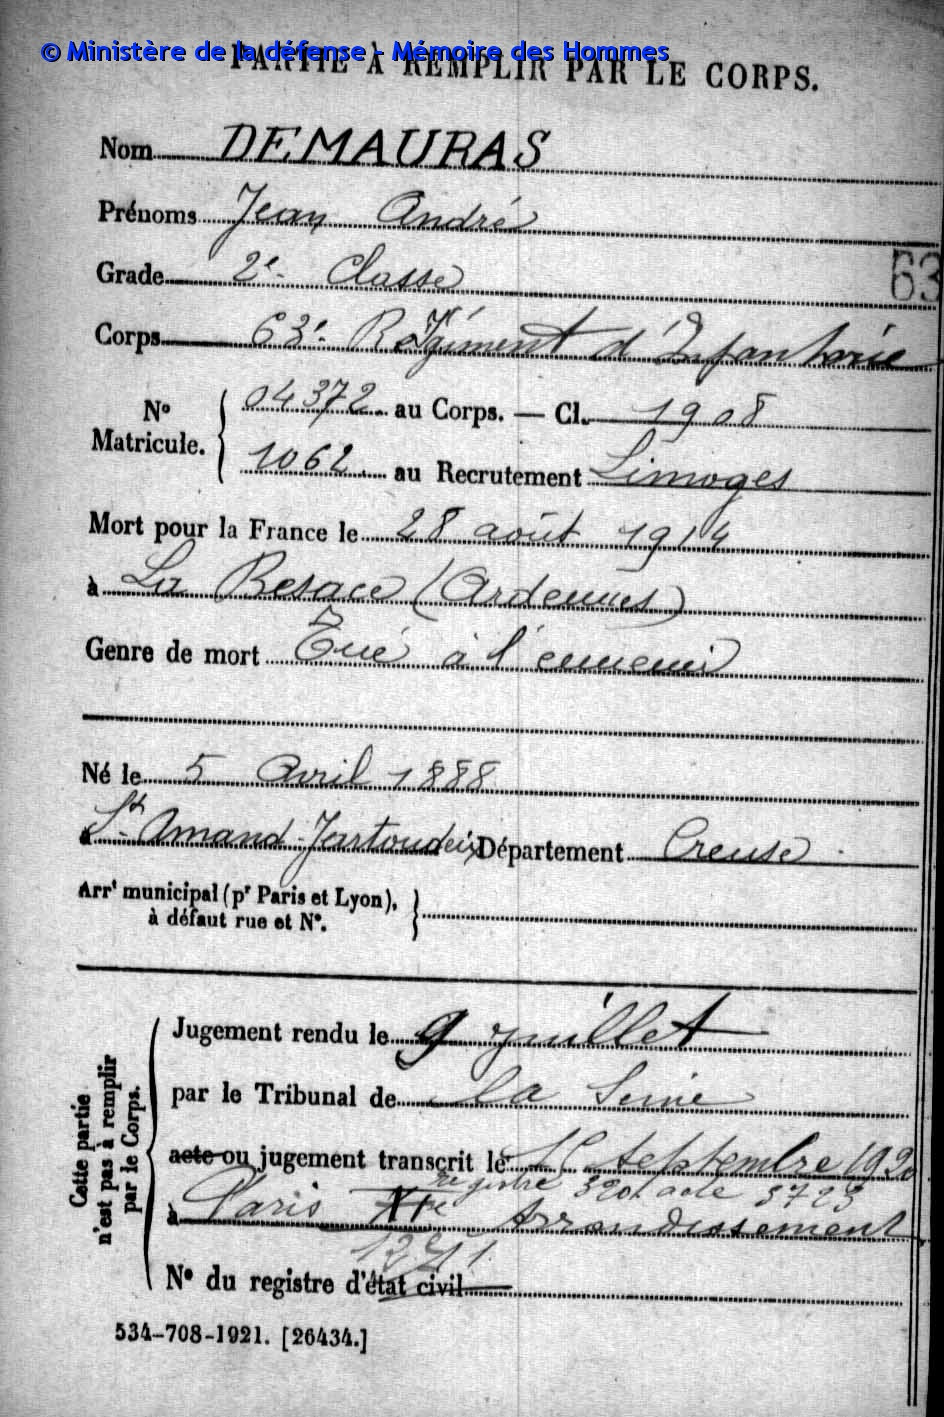 © Ministère de la défense - Mémoire des Hommes
PARTIE À REMPLIR PAR LE CORPS.
Nom DEMAURAS
Prénoms Jean André
Grade 2e Classe
63
Corps 63e Régiment d'Infanterie
No Matricule. { 04372 au Corps. — Cl. 1908
1062 au Recrutement Limoges
Mort pour la France le 28 août 1914
à La Besace (Ardennes)
Genre de mort Tué à l'ennemi
Né le 5 Avril 1888
à St Amand-Jartoudeix Département Creuse
Arrt municipal (pr Paris et Lyon), à défaut rue et No. }
Cette partie n'est pas à remplir par le Corps.
Jugement rendu le 9 juillet
par le Tribunal de la Seine
acte ou jugement transcrit le septembre 1920
registre acte 3723
à Paris Arrondissement
No du registre d'état civil
534-708-1921. [26434.]